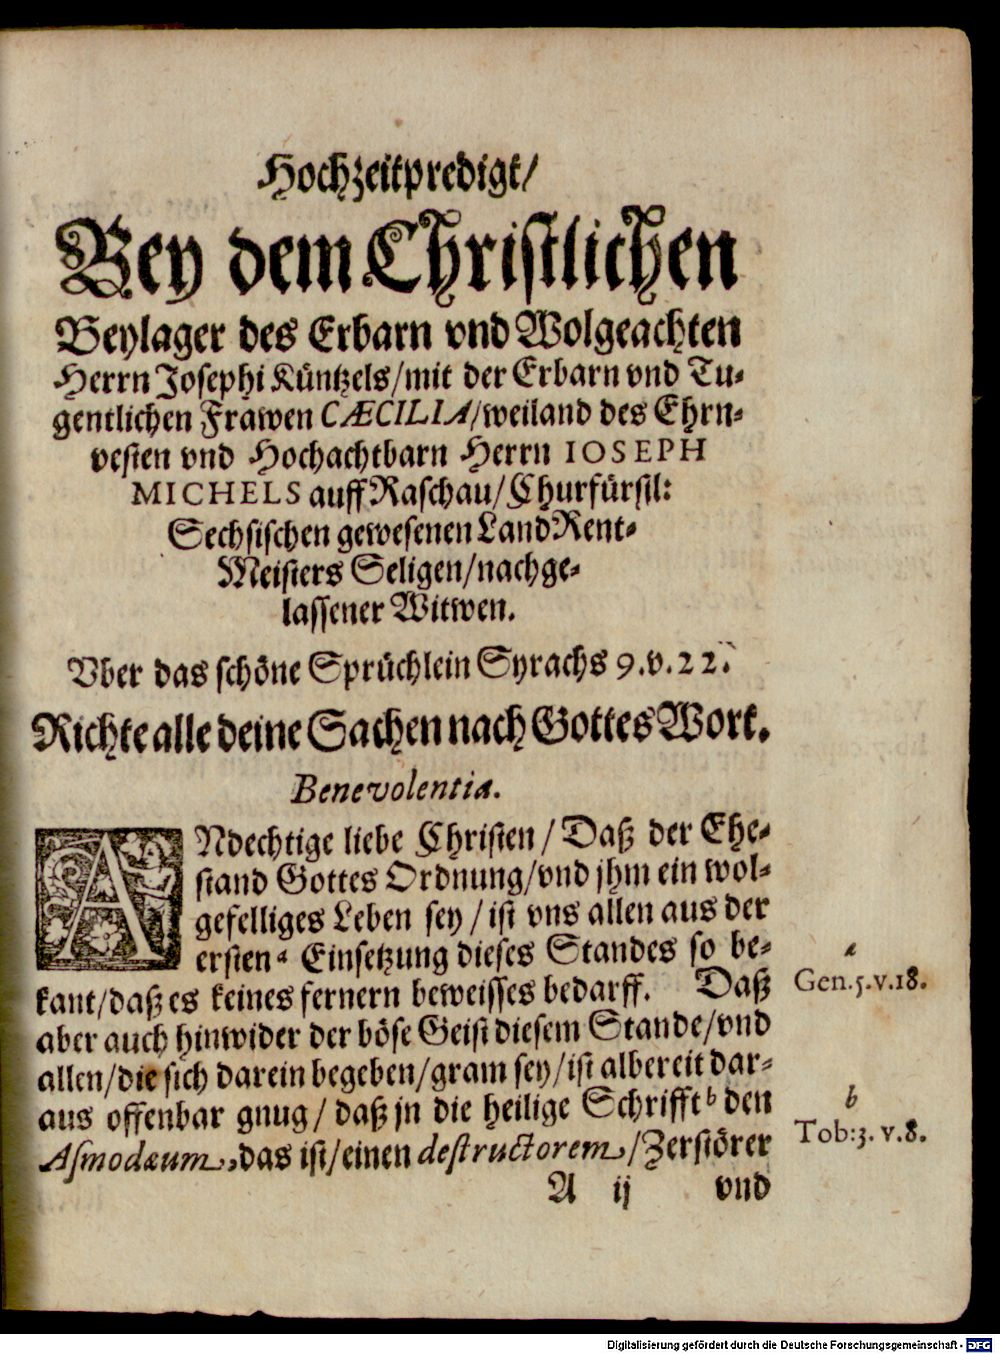 Hochzeitpredigt/
Bey dem Christlichen
Beylager des Erbarn vnd Wolgeachten
Herrn Josephi Küntzels/mit der Erbarn vnd Tu-
gentlichen Frawen CÆCILIA/weiland des Ehrn-
vesten vnd Hochachtbarn Herrn IOSEPH
MICHELS auff Raschau/Churfürstl:
Sechsischen gewesenen LandRent-
Meisters Seligen/nachge-
lassener Witwen.
Vber das schöne Sprüchlein Syrachs 9.v.22.
Richte alle deine Sachen nach Gottes Wort.
Benevolentia.
ANdechtige liebe Christen/Daß der Ehe-
stand Gottes Ordnung/vnd jhm ein wol-
gefelliges Leben sey/ist vns allen aus der
ersten a Einsetzung dieses Standes so be-
kant/daß es keines fernern beweisses bedarff. Daß
aber auch hinwider der böse Geist diesem Stande/vnd
allen/die sich darein begeben/gram sey/ist albereit dar-
aus offenbar gnug/daß jn die heilige Schrifft b den
Asmodæum, das ist/einen destructorem/Zerstörer
A ij vnd
a
Gen.5.v.18.
b
Tob:3.v.8.
Digitalisierung gefördert durch die Deutsche Forschungsgemeinschaft - DFG